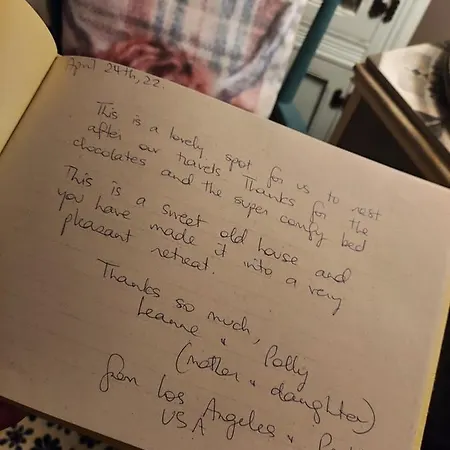 April 24th, 22.
This is a lovely spot for us to rest
after our travels. Thanks for the
chocolates and the super comfy bed
This is a sweet old house and
you have made it into a very
pleasant retreat.
Thanks so much,
Leanne & Polly
(mother & daughter)
from Los Angeles &
USA